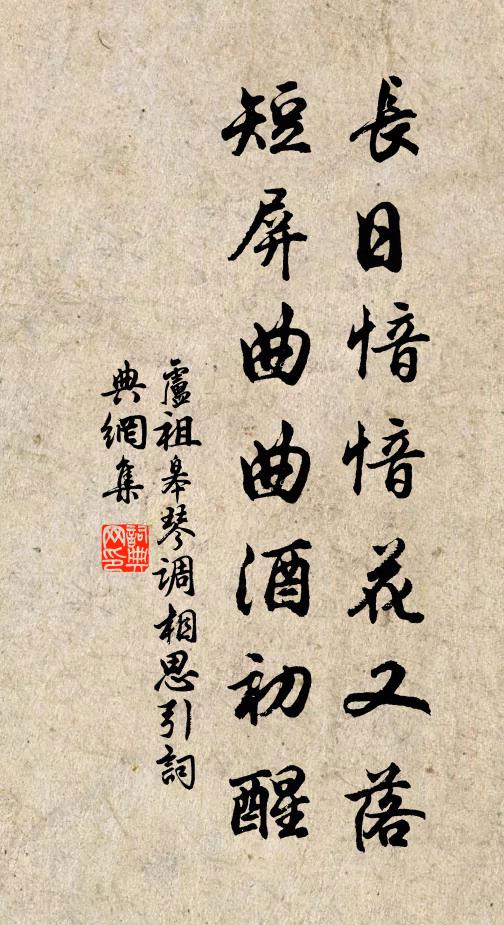 長日愔愔花又落
短屏曲曲酒初醒
盧祖皋琴調相思引詞
典網集
詞典網印